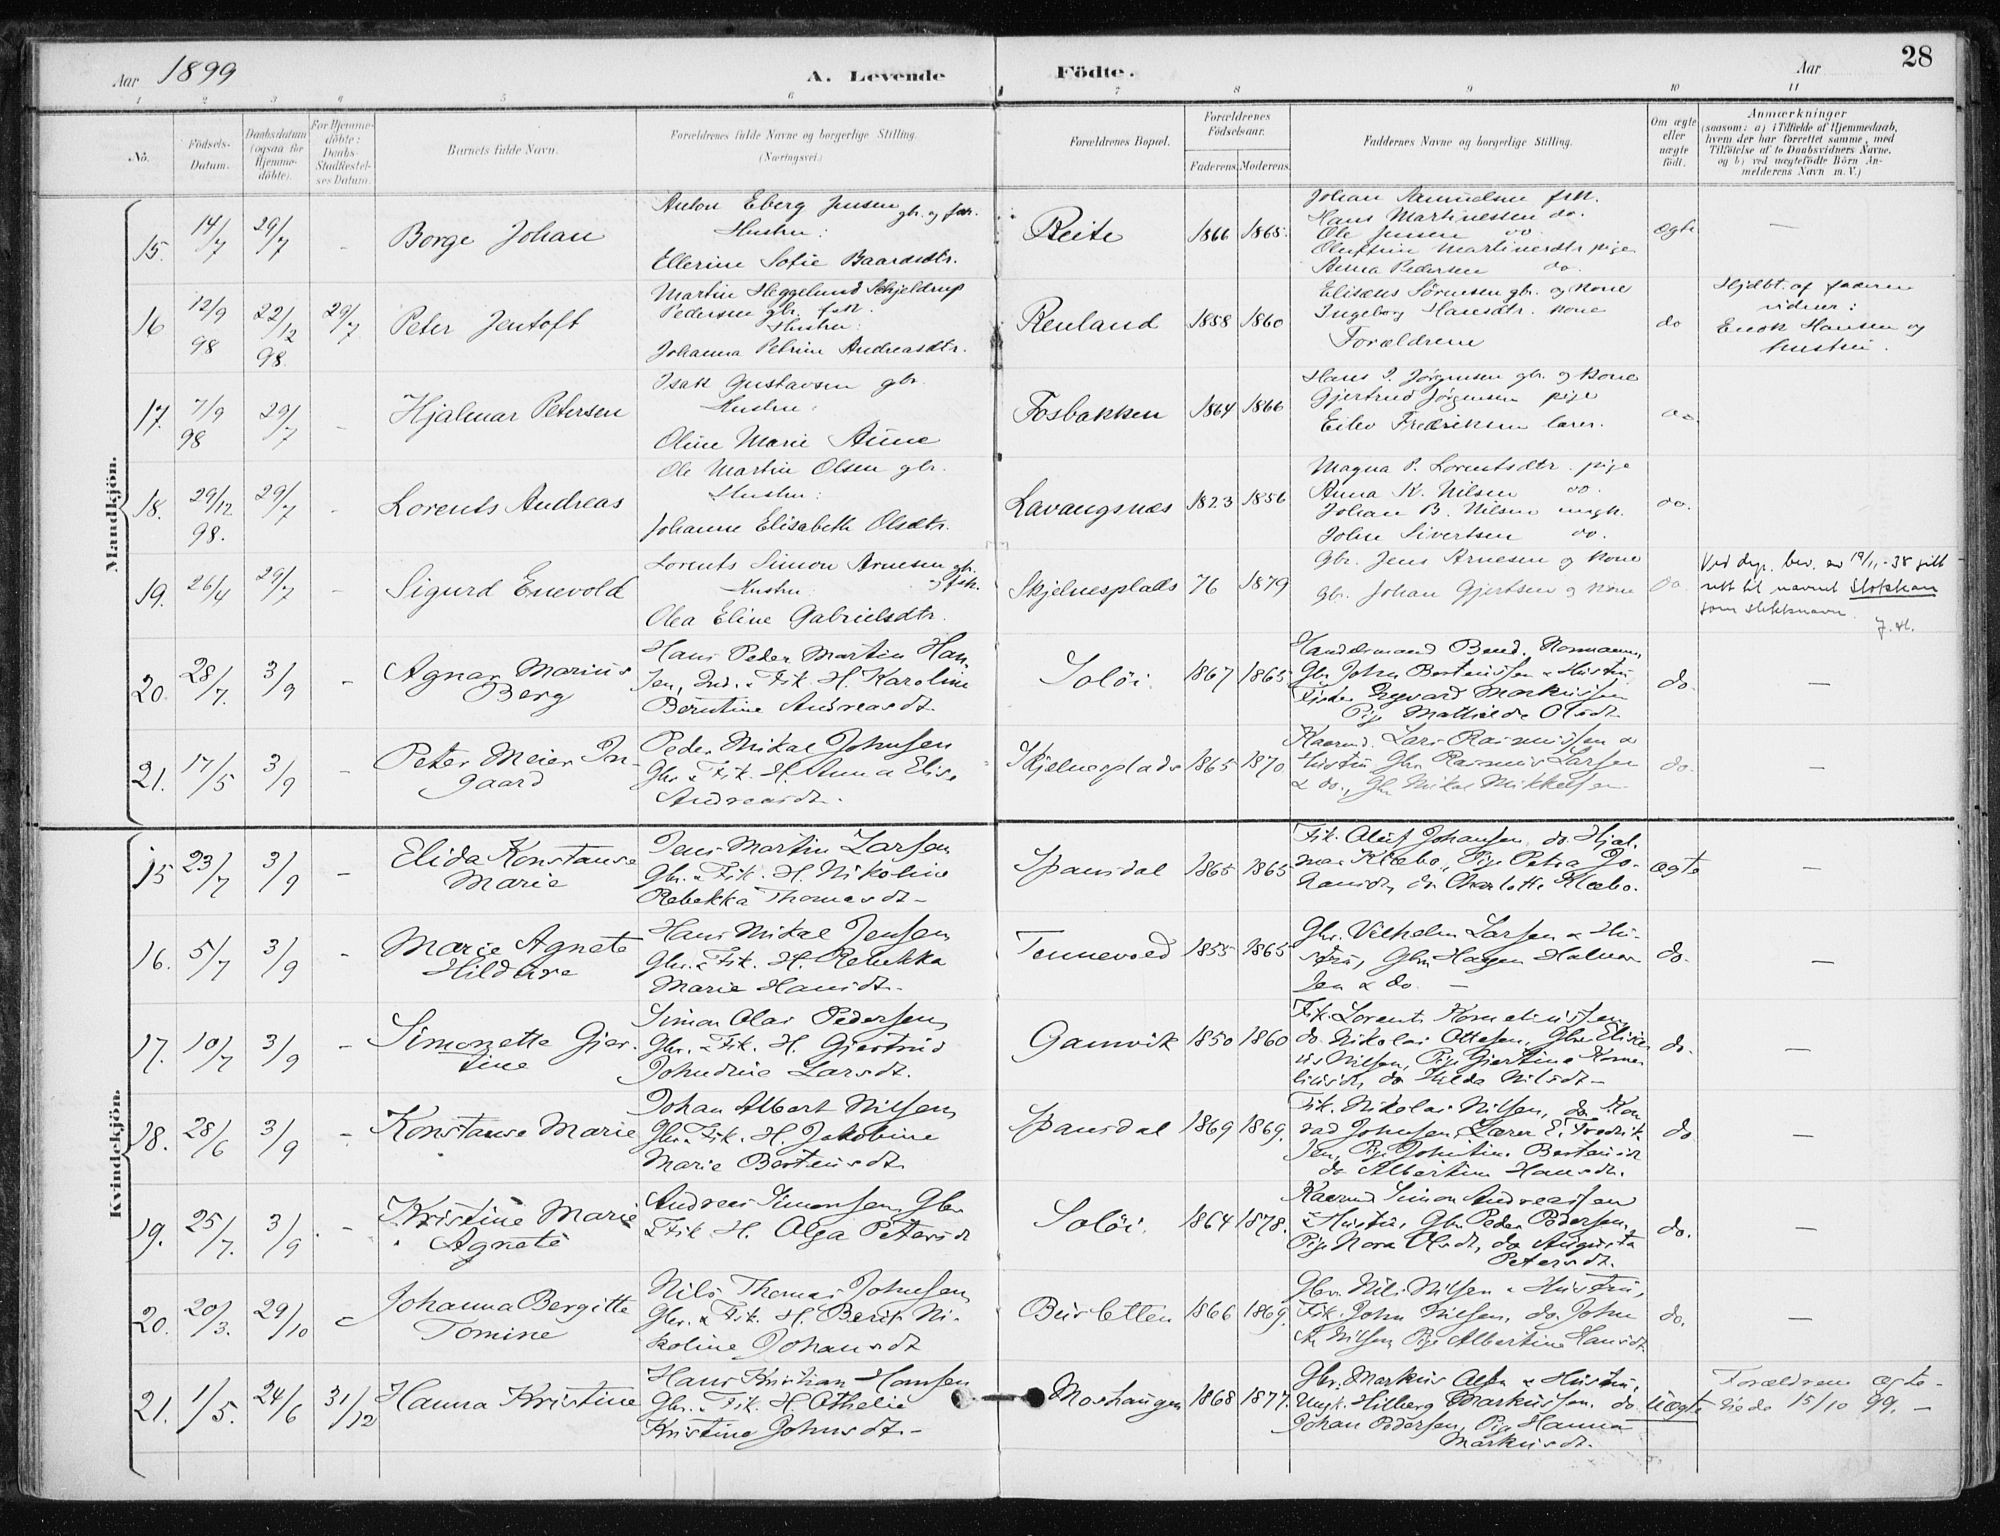 Aar 1899
A. Levende
Födte.
Aar
28
1 2 3 4 5 6 7 8 9 10 11
No.
Födsels-
Datum.
Daabsdatum
(ogsaa for
Hjemme-
döbte).
For Hjemme-
döbte:
Daabs-
Stadfæstel-
ses Datum.
Barnets fulde Navn.
Forældrenes fulde Navne og borgerlige Stilling.
(Næringsvei.)
Forældrenes Bopæl.
Forældrenes
Födselsaar.
Faderens. Moderens.
Faddernes Navne og borgerlige Stilling.
Om ægte
eller
uægte
födt.
Anmærkninger
(saasom: a) i Tilfælde af Hjemmedaab,
hvem der har forrettet samme, med
Tilföielse af to Daabsvidners Navne,
og b) ved uægtefödte Börn An-
melderens Navn m. V.)
Mandkjön.
15. 14/7 29/7 - Borge Johan
Anton Eberg Jensen gbr. og fsk.
Hustru:
Ellerine Sofie Baardsdtr.
Reite 1866 1865.
Johan Samuelsen fsk.
Hans Martinessen do.
Ole Jensen do
Oluffine Martinesdtr pige
Anna Pedersen do.
ægte —
16 12/9 98 22/12 98. 29/7 Peter Jentoft
Martin Heggelund Schjeldrup
Pedersen gbr. fsk.
Hustru:
Johanna Petrine Andreasdtr.
Renland 1858 1860
Elisæus Sørensen gbr. og kone
Ingeborg Hansdtr. kone
Forældrene
do
Hjdbt. af faderen
vidner:
Enok Hansen og
hustru.
17. 7/9 98 29/7 - Hjalmar Petersen
Isak Gustavsen gbr.
Hustru:
Oline Marie Aune
Fosbakken 1864 1866
Hans P. Jørgensen gbr. og kone
Gjertrud Jørgensen pige
Eilev Fredriksen lærer.
do.
18. 29/12 98. 29/7 - Lorents Andreas
Ole Martin Olsen gbr.
Hustru:
Johanne Elisabeth Olsdtr.
Lavangsnæs 1823 1856
Magna P. Lorentsdtr. pige
Anna K. Nilsen do.
Johan B. Nilsen ungk.
John Sivertsen do.
do.
19. 26/4 29/7 - Sigurd Enevold
Lorents Simon Arnesen gbr.
Hustru: og fsk.
Olea Eline Gabrielsdtr.
Skjelnesplads 76 1879
Gbr. Jens Arnesen og kone
gbr. Johan Gjertsen og kone
do
Ved dep. bev. av 19/11-38 gitt
rett til navnet Stokkan
som slektsnavn.
20. 28/7. 3/9 - Agnar Marius
Berg
Hans Peder Martin Han-
sen, Ind. & Fik. H. Karoline
Berntine Andreasdt.
Soløi. 1867 1865
Handelsmand Bernd. Normann,
Gbr John Berteussen & Hustru
Fisker Edvard Markussen
Pige Mathilde Olsdt.
do. —
21. 17/5 3/9 - Peter Meier In-
gaard
Peder Mikal Johnsen
Gbr & Fik. H. Anna Elise
Andreasdt.
Skjelnesplads 1865 1870
Kaarmd. Lars Rasmussen &
Hustru Gbr Rasmus Larsen
& do., Gbr Nikal Mikkelsen.
do. —
Kvindekjön.
15 23/7 3/9 - Elida Konstanse
Marie
Jens Martin Larsen
Gbr. & Fik. H. Nikoline
Rebekka Thomasdt.
Spansdal 1865 1865
Fik. Oluf Johansen, do. Hjal-
mar Klæbo, Pige Petra Jo-
hansdt, do. Charlotte Klæbo.
ægte —
16. 5/7 3/9 - Marie Agnete
Hans Mikal Jensen
Gbr. & Fik. H. Rebekka
Marie Hansdt.
Tennevold 1855 1865
Gbr. Vilhelm Larsen & Hu-
stru, Gbr Hagen Halvor-
sen & do. —
do. —
17. 10/7 3/9 - Simonette Gjer-
tine
Simon Olai Pedersen,
Gbr. & Fik. H. Gjertrud
Johndine Larsdt.
Gamvik 1850 1860
Fik. Lorents Korneliussen,
do. Nikolai Ottesen, Gbr Elise-
us Nilsen, Pige Gjertine Korne-
liusdt, do Hilda Nilsdt.
do. —
18. 28/6 3/9 - Konstanse Marie
Johan Albert Nilsen,
Gbr & Fik. H. Jakobine
Marie Berteusdt.
Spansdal 1869 1869.
Fik. Nikolai Nilsen, do. Kon-
rad Johnsen, Lærer E. Fredrik-
sen, Pige Johntine Berteusdt
do Albertine Hansdt.
do —
19. 25/7. 3/9 - Kristine Marie
Agnete
Andreas Simonsen, Gbr
& Fik H. Olga Petersdt
Soløi. 1864 1878.
Kaarmd Simon Andreassen
& Hustru, Gbr Peder Pedersen,
Pige Nora Olsdt, do Augusta
Petersdt.
do. —
20. 20/3. 29/10 - Johanna Bergitte
Tomine
Nils Thomas Johnsen
Gbr. & Fik. H. Berit Ni-
koline Johansdt
1866 1869.
Gbr. Nils Nilsen & Hustru,
Fik. John Nilsen, do. John
A. Nilsen, Pige Albertine Hansdt.
do. —
21. 1/5. 24/6 31/12 Hanna Kristine
Hans Kristian Hansen
Gbr. & Fik. H. Othelie
Kristine Johnsdt.
Moshaugen 1868 1877.
Gbr. Markus Olsen & Hustru,
Ungk. Hilberg Markussen, do.
Johan Pedersen, Pige Hanna
Markusdt.
Uægte
Forældrene ægte-
viede 15/10 99. —